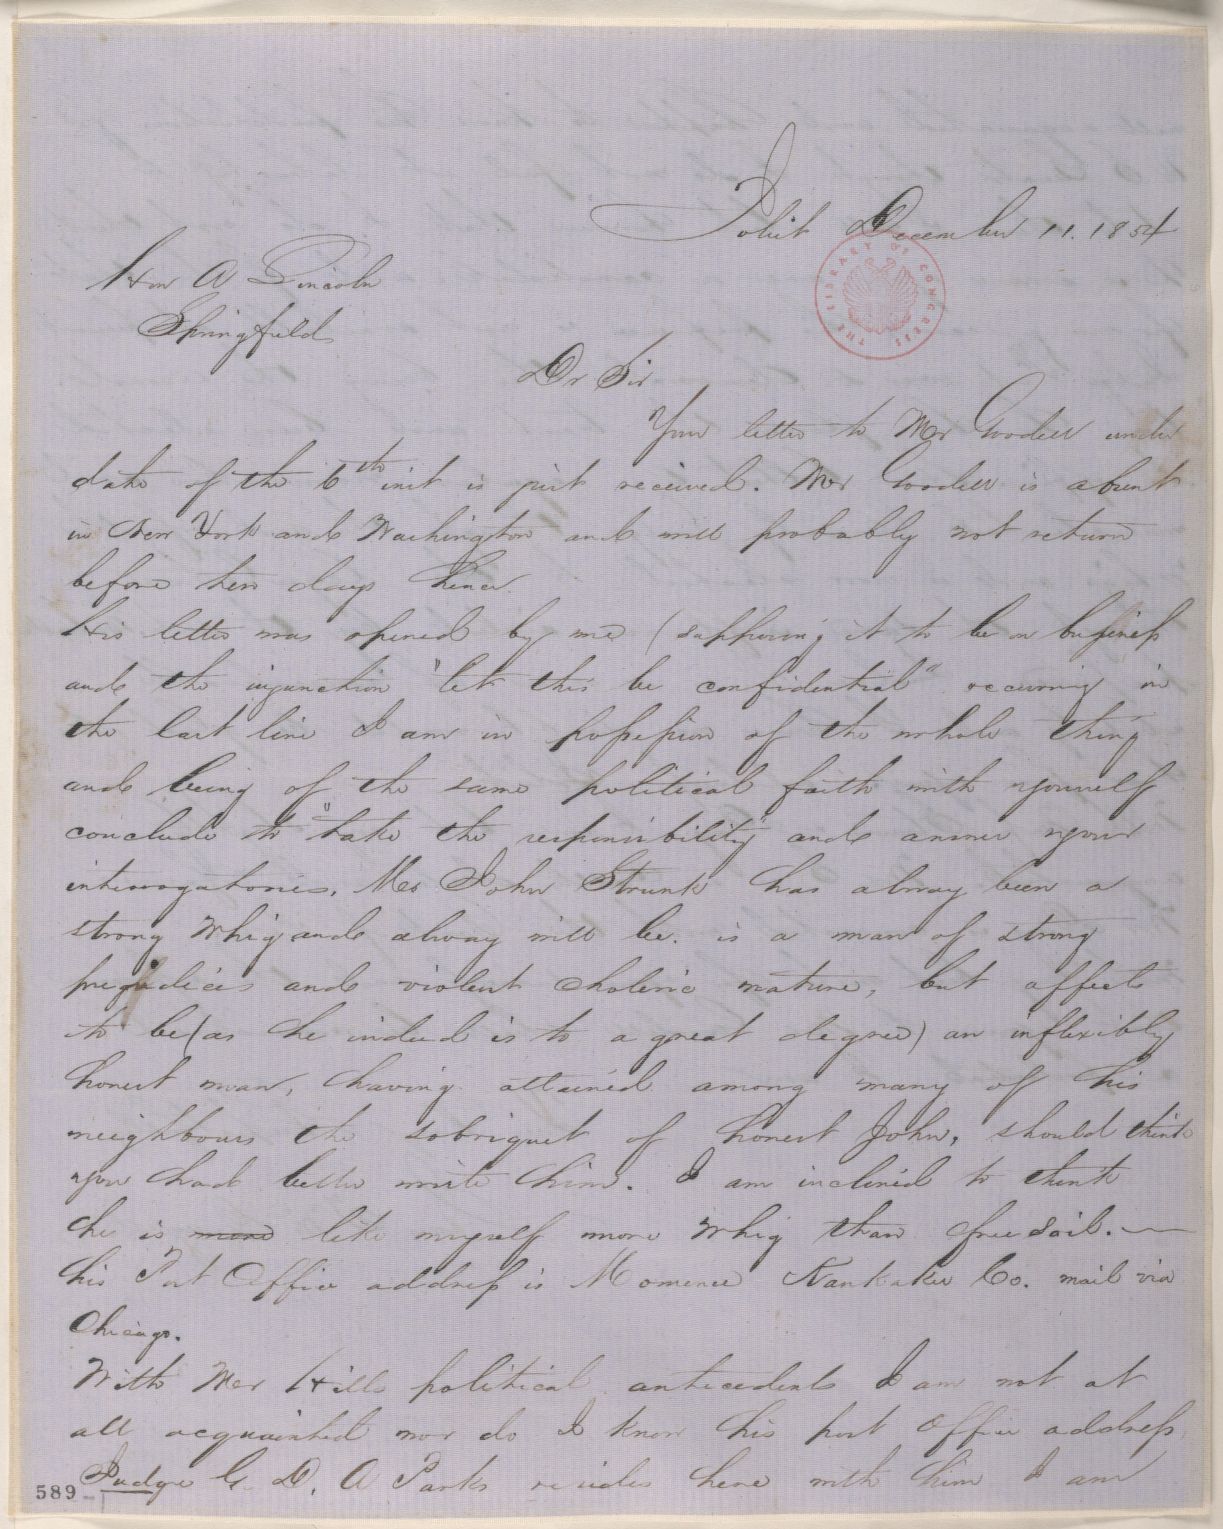 Joliet December 11. 1854
THE LIBRARY OF CONGRESS
Hon A Lincoln
Springfield
Dr Sir
Your letter to Mr Goodell under
date of the 6th inst is just received. Mr Goodell is absent
in New York and Washington and will probably not return
before ten days hence.
His letter was opened by me (supposing it to be on business
and the injunction "let this be confidential" occurring in
the last line I am in possession of the whole thing
and being of the same political faith with yourself
conclude to "take the responsibility" and answer your
interrogatories. Mr John Strunk has alway been a
strong Whig and alway will be. is a man of strong
prejudices and violent choleric nature, but affects
to be (as he indeed is to a great degree) an inflexibly
honest man, having attained among many of his
neighbours the sobriquet of honest John, should think
you had better write him. I am inclined to think
he is more like myself more Whig than free soil. —
his Post Office address is Momence Kankakee Co. mail via
Chicago.
With Mr Hills political antecedents I am not at
all acquainted nor do I know his post Office address
Judge G. D. A Parks resides here with him I am
589